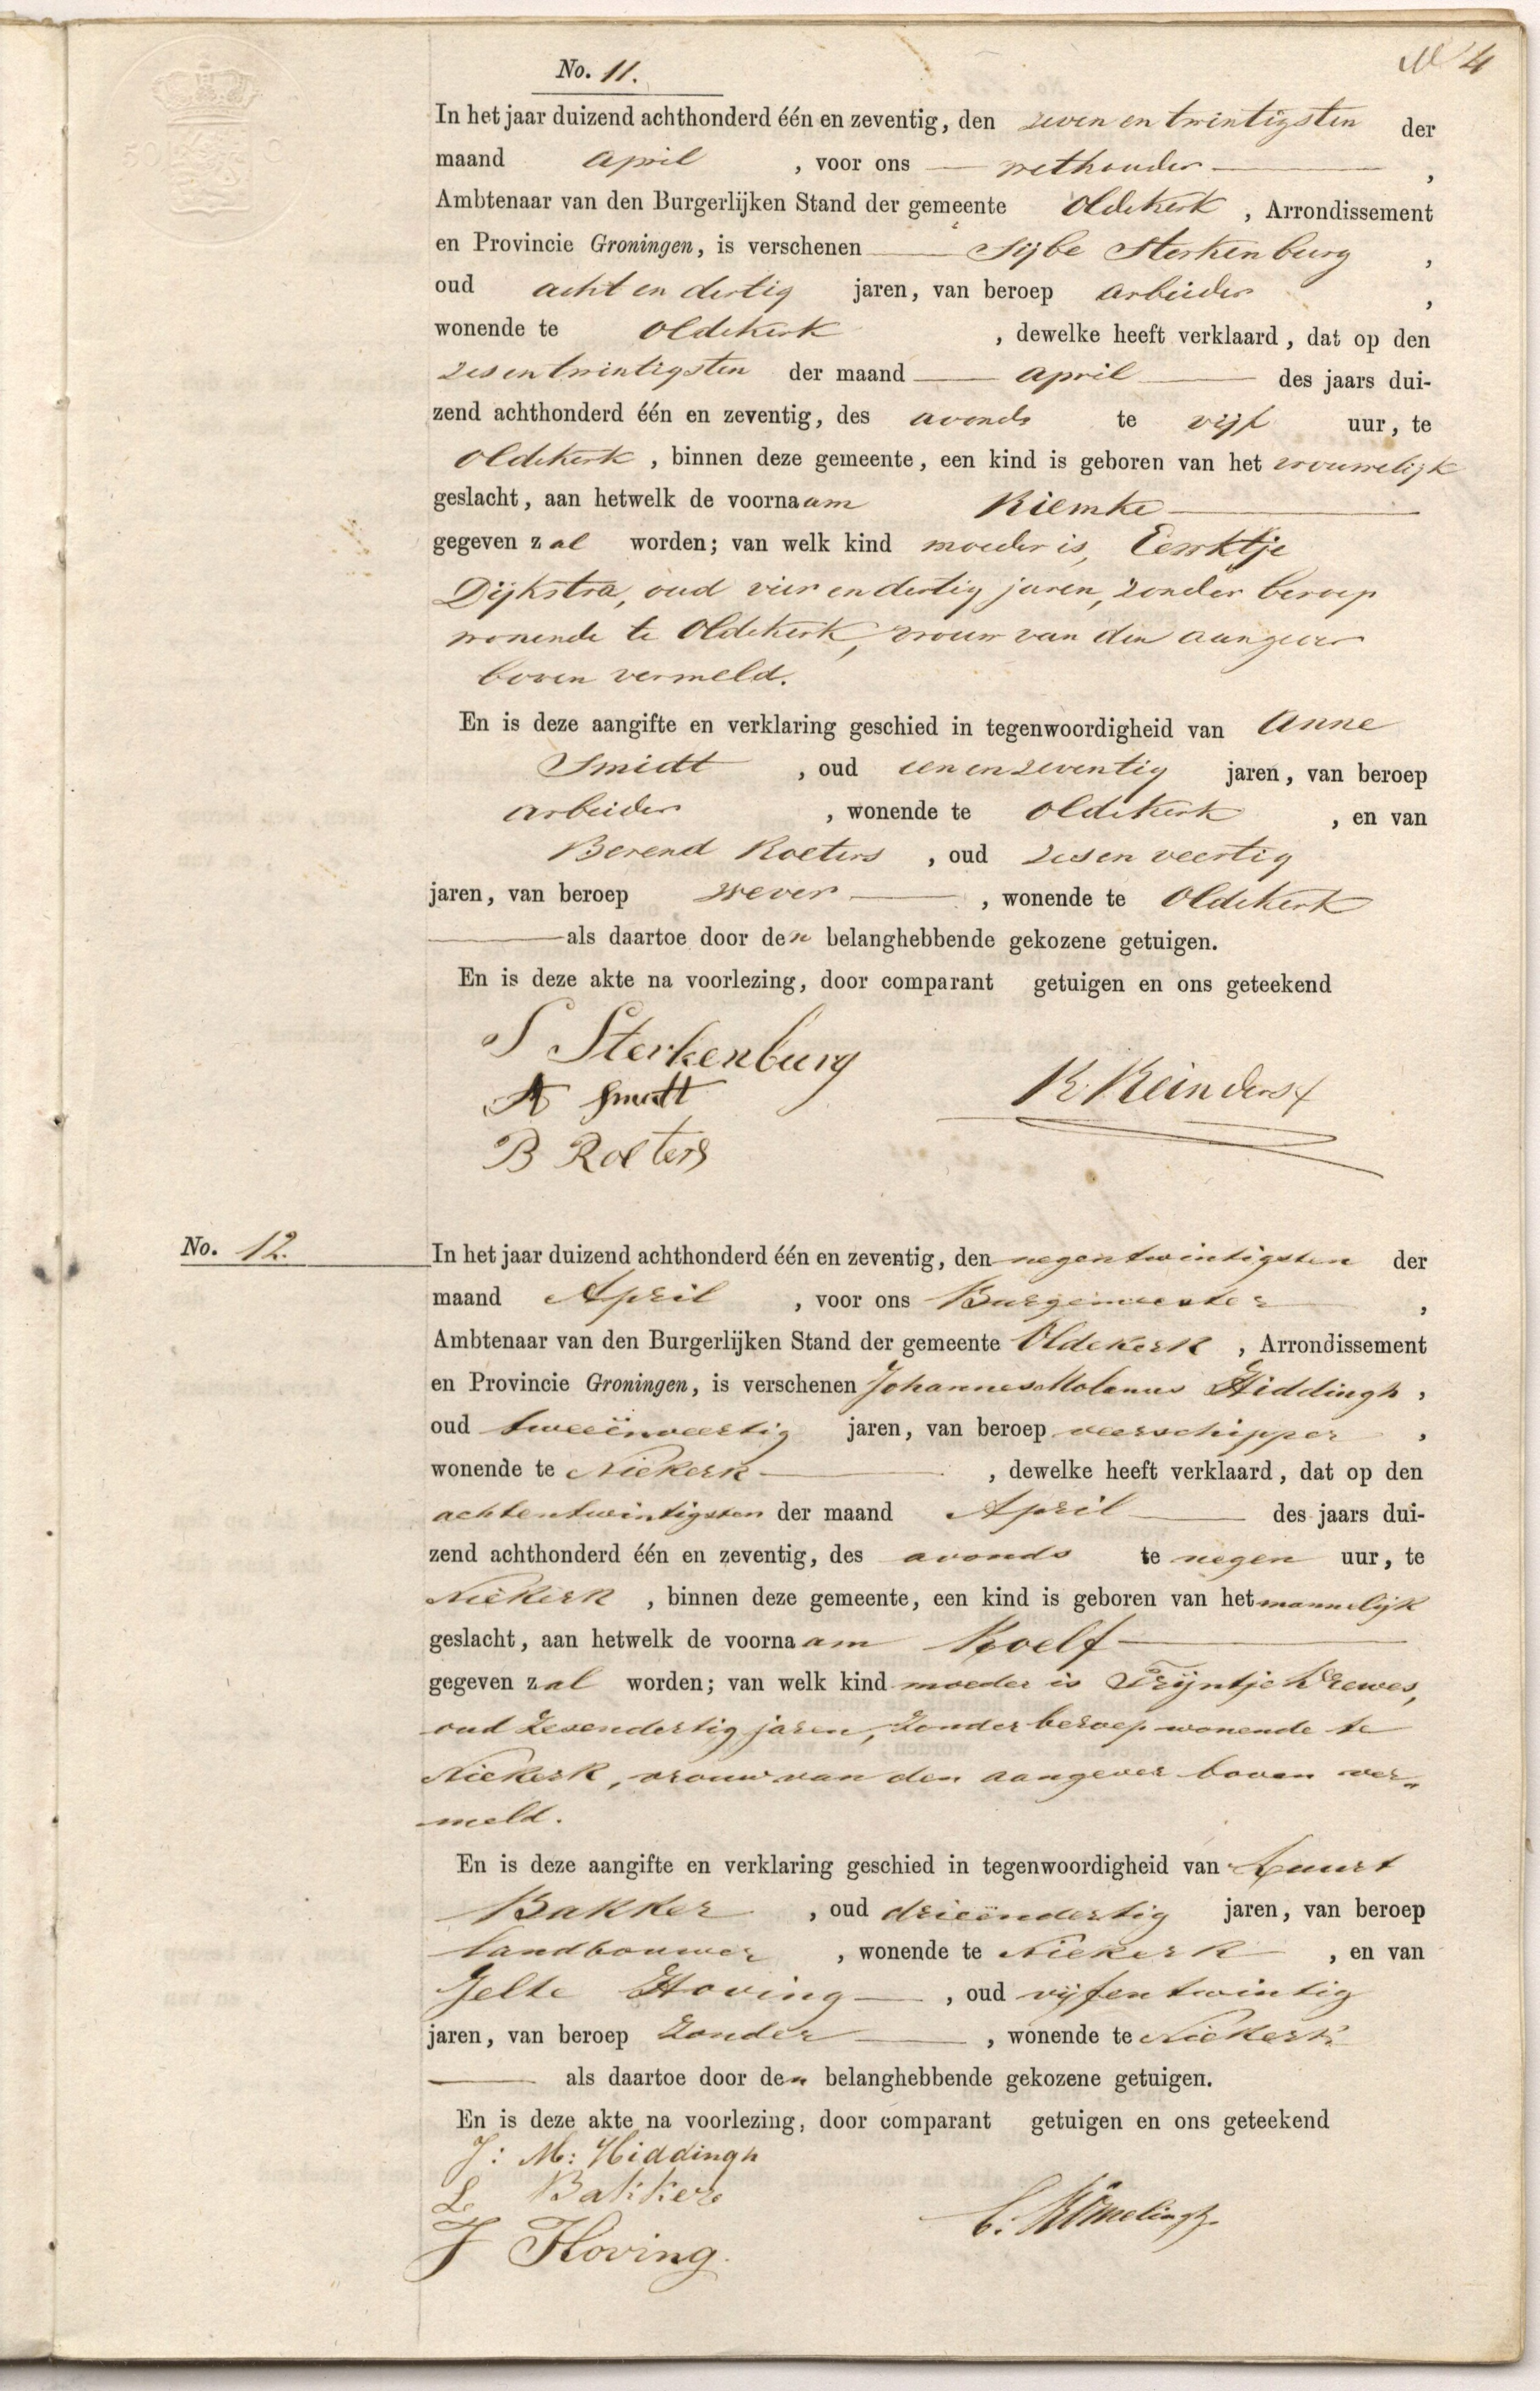 4
No. 11.
In het jaar duizend achthonderd één en zeventig, den zeven en twintigsten der
maand April , voor ons wethouder ,
Ambtenaar van den Burgerlijken Stand der gemeente Oldekerk , Arrondissement
en Provincie Groningen, is verschenen Sijbe Sterkenburg ,
oud acht en dertig jaren, van beroep arbeider ,
wonende te Oldekerk , dewelke heeft verklaard, dat op den
zesentwintigsten der maand April des jaars dui-
zend achthonderd één en zeventig, des avonds te vijf uur, te
Oldekerk , binnen deze gemeente, een kind is geboren van het vrouwelijk
geslacht, aan hetwelk de voornaam Riemke
gegeven zal worden; van welk kind moeder is,
Dijkstra, oud vier en dertig jaren, zonder beroep
wonende te Oldekerk, vrouw van den aangever
boven vermeld.
En is deze aangifte en verklaring geschied in tegenwoordigheid van Anne
Smidt , oud een en zeventig jaren, van beroep
arbeider , wonende te Oldekerk , en van
Berend Roeters , oud zes en veertig
jaren, van beroep wever , wonende te Oldekerk
als daartoe door den belanghebbende gekozene getuigen.
En is deze akte na voorlezing, door comparant getuigen en ons geteekend
S Sterkenburg
A Smidt
K Reinders
B Roeters
No. 12.
In het jaar duizend achthonderd één en zeventig, den negentwintigsten der
maand April , voor ons Burgemeester ,
Ambtenaar van den Burgerlijken Stand der gemeente Oldekerk , Arrondissement
en Provincie Groningen, is verschenen Johannes Molanus Hiddingh ,
oud tweeënveertig jaren, van beroep veerschipper ,
wonende te Niekerk , dewelke heeft verklaard, dat op den
achtentwintigsten der maand April des jaars dui-
zend achthonderd één en zeventig, des avonds te negen uur, te
Niekerk , binnen deze gemeente, een kind is geboren van het mannelijk
geslacht, aan hetwelk de voornaam Roelf
gegeven zal worden; van welk kind moeder is Trijntje Drewes,
oud zevendertig jaren, zonder beroep wonende te
Niekerk, vrouw van den aangever boven ver-
meld.
En is deze aangifte en verklaring geschied in tegenwoordigheid van Luurt
Bakker , oud drieëndertig jaren, van beroep
landbouwer , wonende te Niekerk , en van
Jelte Hoving , oud vijfentwintig
jaren, van beroep zonder , wonende te Niekerk
als daartoe door den belanghebbende gekozene getuigen.
En is deze akte na voorlezing, door comparant getuigen en ons geteekend
J: M: Hiddingh
L Bakker
J Hoving.